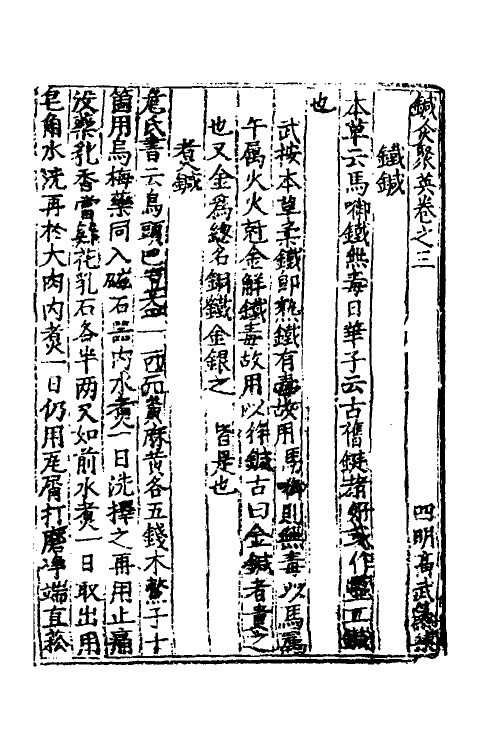 鍼灸聚英卷之三　四明高武纂集
鐵鍼
本草云馬啣鐵無毒日華子云古舊鋌者好或作醫工鍼
也
武按本草柔鐵即熟鐵有毒故用馬啣則無毒以馬屬
午屬火火尅金解鐵毒故用以作鍼古曰金鍼者貴之
也又金爲總名銅鐵金銀之　皆是也
煮鍼
危氏書云烏頭巴豆各一兩硫黃麻黃各五錢木鱉子十
箇用烏梅藥同入磁石器內水煮一日洗擇之再用止痛
沒藥乳香當歸花乳石各半兩又如前水煮一日取出用
皂角水洗再於犬肉內煮一日仍用瓦屑打磨凈端直菘